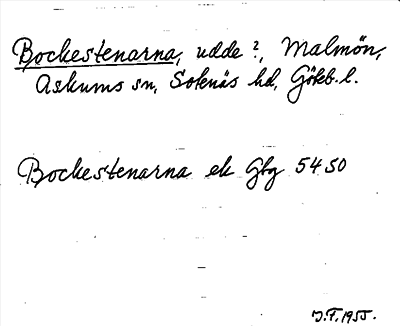 Bockestenarna, udde ?, Malmön,
Askums sn, Sotenäs hd, Göteb. l.
Bockestenarna ek Gbg 54 SO
J.F. 1955.